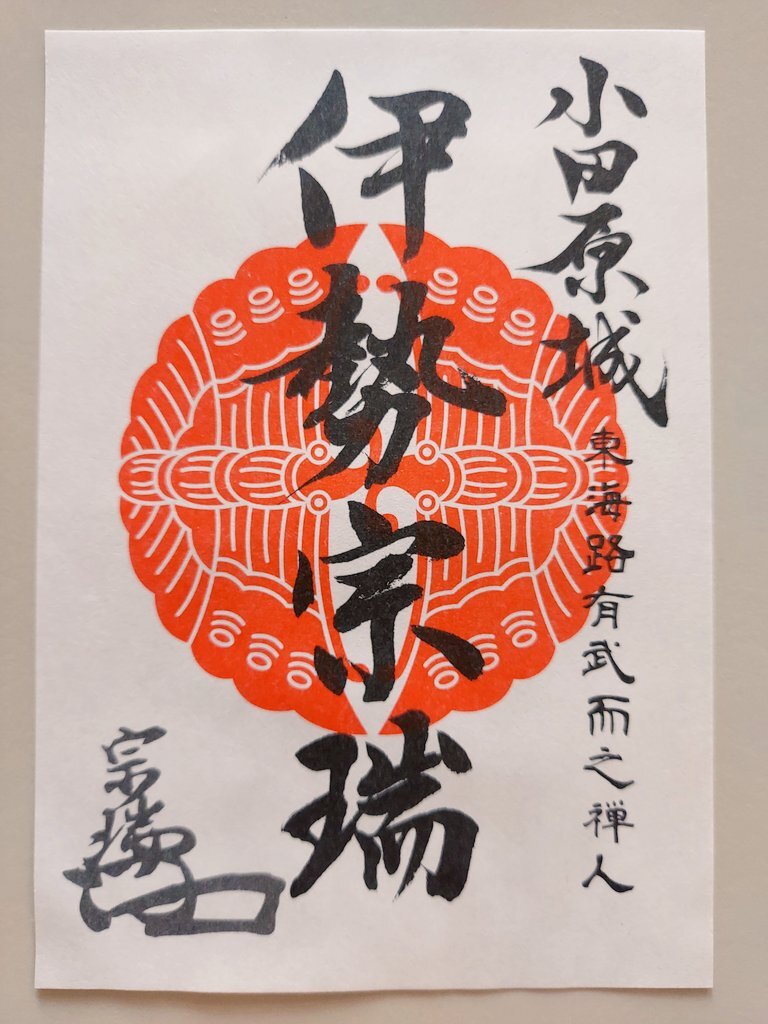 小田原城
東海路有武而之禅人
伊勢宗瑞
宗瑞